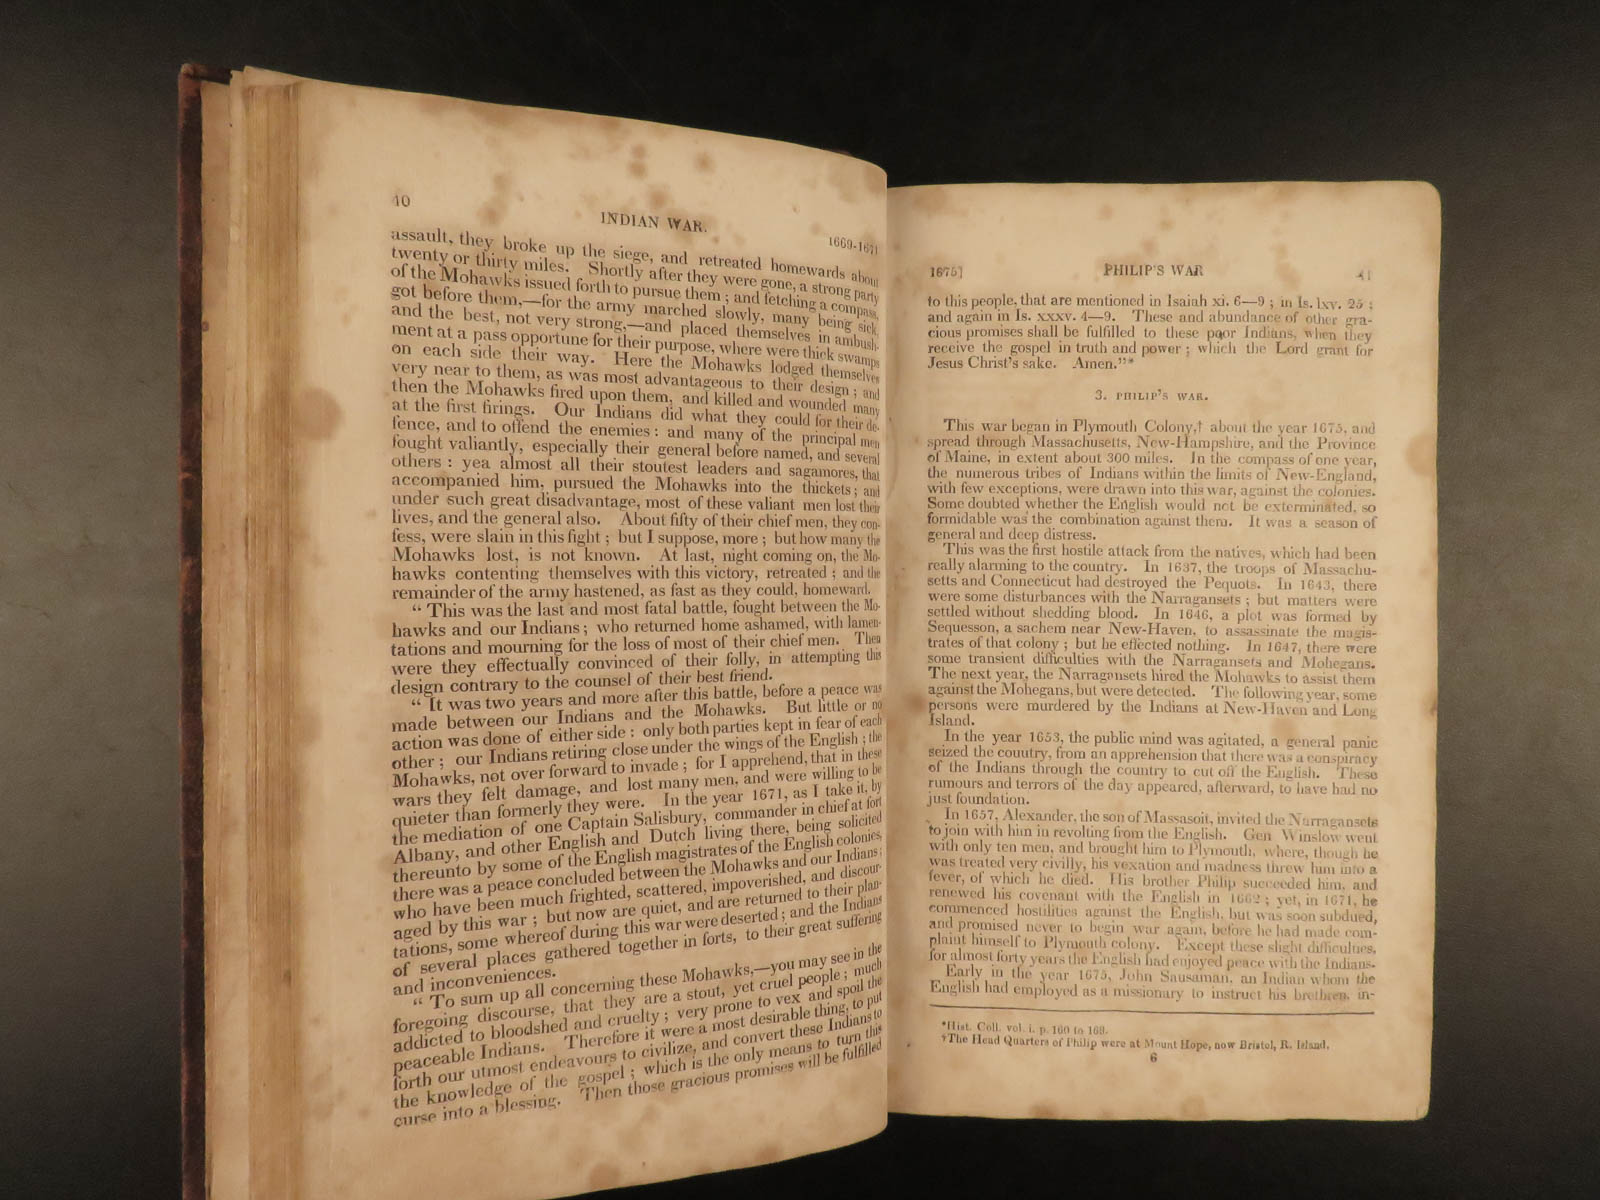 40
INDIAN WAR.
1669-1671
assault, they broke up the siege, and retreated homewards about
twenty or thirty miles. Shortly after they were gone, a strong party
of the Mohawks issued forth to pursue them ; and fetching a compass,
got before them,—for the army marched slowly, many being sick,
and the best, not very strong,—and placed themselves in ambush-
ment at a pass opportune for their purpose, where were thick swamps
on each side their way. Here the Mohawks lodged themselves
very near to them, as was most advantageous to their design ; and
then the Mohawks fired upon them, and killed and wounded many
at the first firings. Our Indians did what they could for their de-
fence, and to offend the enemies : and many of the principal men
fought valiantly, especially their general before named, and several
others : yea almost all their stoutest leaders and sagamores, that
accompanied him, pursued the Mohawks into the thickets ; and
under such great disadvantage, most of these valiant men lost their
lives, and the general also. About fifty of their chief men, they con-
fess, were slain in this fight ; but I suppose, more ; but how many the
Mohawks lost, is not known. At last, night coming on, the Mo-
hawks contenting themselves with this victory, retreated ; and the
remainder of the army hastened, as fast as they could, homeward.
“ This was the last and most fatal battle, fought between the Mo-
hawks and our Indians ; who returned home ashamed, with lamen-
tations and mourning for the loss of most of their chief men. Then
were they effectually convinced of their folly, in attempting this
design contrary to the counsel of their best friend.
“ It was two years and more after this battle, before a peace was
made between our Indians and the Mohawks. But little or no
action was done of either side : only both parties kept in fear of each
other ; our Indians retiring close under the wings of the English ; the
Mohawks, not over forward to invade ; for I apprehend, that in these
wars they felt damage, and lost many men, and were willing to be
quieter than formerly they were. In the year 1671, as I take it, by
the mediation of one Captain Salisbury, commander in chief at fort
Albany, and other English and Dutch living there, being solicited
thereunto by some of the English magistrates of the English colonies,
there was a peace concluded between the Mohawks and our Indians ;
who have been much frighted, scattered, impoverished, and discour-
aged by this war ; but now are quiet, and are returned to their plan-
tations, some whereof during this war were deserted ; and the Indians
of several places gathered together in forts, to their great suffering
and inconveniences.
“ To sum up all concerning these Mohawks,—you may see in the
foregoing discourse, that they are a stout, yet cruel people ; much
addicted to bloodshed and cruelty ; very prone to vex and spoil the
peaceable Indians. Therefore it were a most desirable thing, to put
forth our utmost endeavours to civilize, and convert these Indians to
the knowledge of the gospel ; which is the only means to turn this
curse into a blessing. Then those gracious promises will be fulfilled
1675]
PHILIP'S WAR
41
to this people, that are mentioned in Isaiah xi. 6—9 ; in Is. lxv. 25 ;
and again in Is. xxxv. 4—9. These and abundance of other gra-
cious promises shall be fulfilled to these poor Indians, when they
receive the gospel in truth and power ; which the Lord grant for
Jesus Christ's sake. Amen.”*
3. PHILIP'S WAR.
This war began in Plymouth Colony,† about the year 1675, and
spread through Massachusetts, New-Hampshire, and the Province
of Maine, in extent about 300 miles. In the compass of one year,
the numerous tribes of Indians within the limits of New-England,
with few exceptions, were drawn into this war, against the colonies.
Some doubted whether the English would not be exterminated, so
formidable was the combination against them. It was a season of
general and deep distress.
This was the first hostile attack from the natives, which had been
really alarming to the country. In 1637, the troops of Massachu-
setts and Connecticut had destroyed the Pequots. In 1643, there
were some disturbances with the Narragansets ; but matters were
settled without shedding blood. In 1646, a plot was formed by
Sequesson, a sachem near New-Haven, to assassinate the magis-
trates of that colony ; but he effected nothing. In 1647, there were
some transient difficulties with the Narragansets and Mohegans.
The next year, the Narragansets hired the Mohawks to assist them
against the Mohegans, but were detected. The following year, some
persons were murdered by the Indians at New-Haven and Long
Island.
In the year 1653, the public mind was agitated, a general panic
seized the country, from an apprehension that there was a conspiracy
of the Indians through the country to cut off the English. These
rumours and terrors of the day appeared, afterward, to have had no
just foundation.
In 1657, Alexander, the son of Massasoit, invited the Narragansets
to join with him in revolting from the English. Gen Winslow went
with only ten men, and brought him to Plymouth, where, though he
was treated very civilly, his vexation and madness threw him into a
fever, of which he died. His brother Philip succeeded him, and
renewed his covenant with the English in 1662 ; yet, in 1671, he
commenced hostilities against the English, but was soon subdued,
and promised never to begin war again, before he had made com-
plaint himself to Plymouth colony. Except these slight difficulties,
for almost forty years the English had enjoyed peace with the Indians.
Early in the year 1675, John Sausaman, an Indian whom the
English had employed as a missionary to instruct his brethren, in-
*Hist. Coll. vol. i. p. 160 to 168.
†The Head Quarters of Philip were at Mount Hope, now Bristol, R. Island.
6